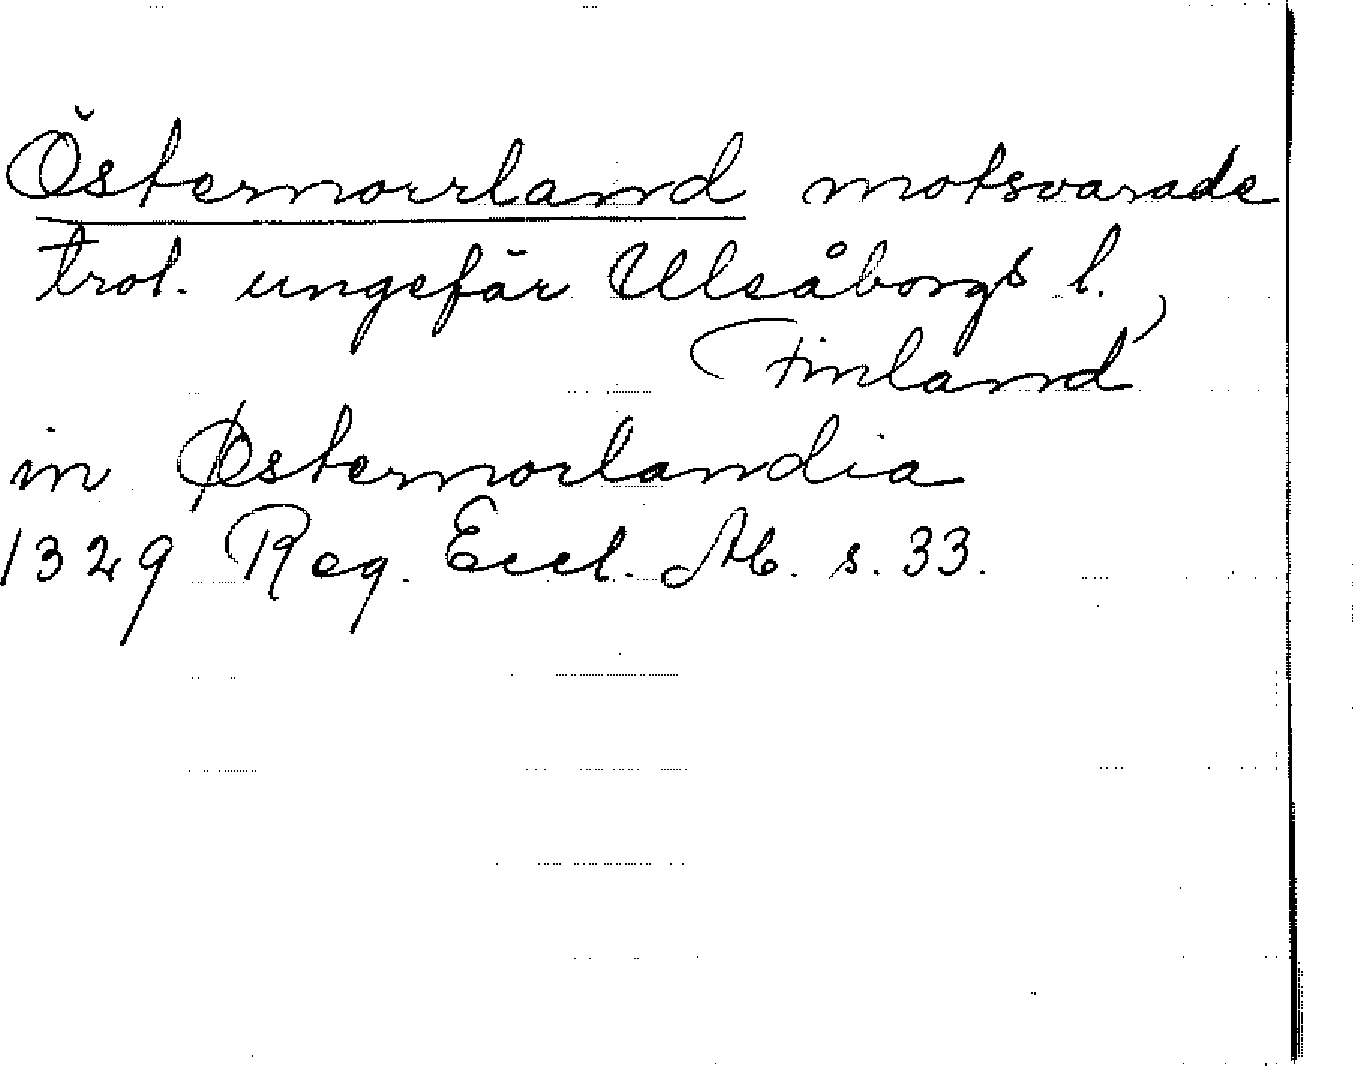 Östernorrland motsvarade
trol. ungefär Uleåborgs l.,
Finland
in Østernorlandia
1329 Reg. Eccl. Ab. s. 33.